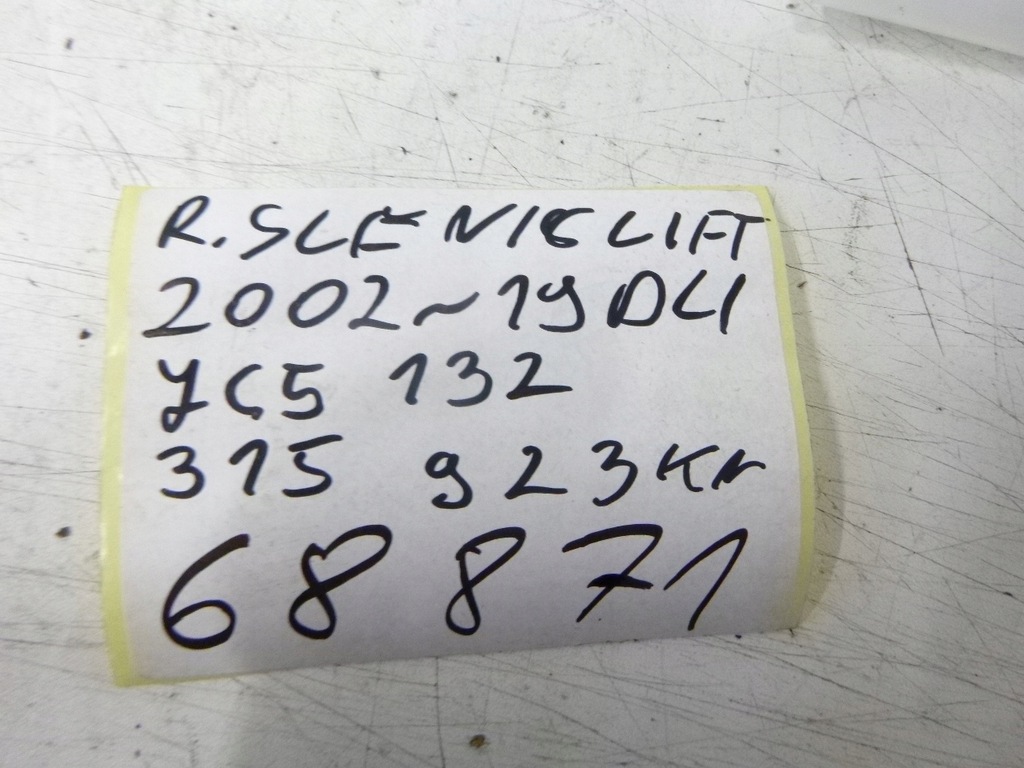 R. SCENIC LIFT
2002~ 19 DCI
YC5 132
315 923 KM
68871